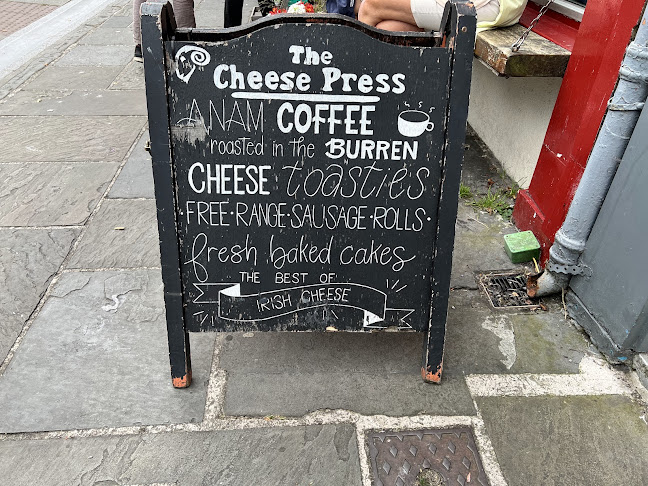 The
Cheese Press
ANAM COFFEE
roasted in the BURREN
CHEESE toasties
·FREE·RANGE·SAUSAGE·ROLLS·
fresh baked cakes
THE BEST OF
IRISH CHEESE